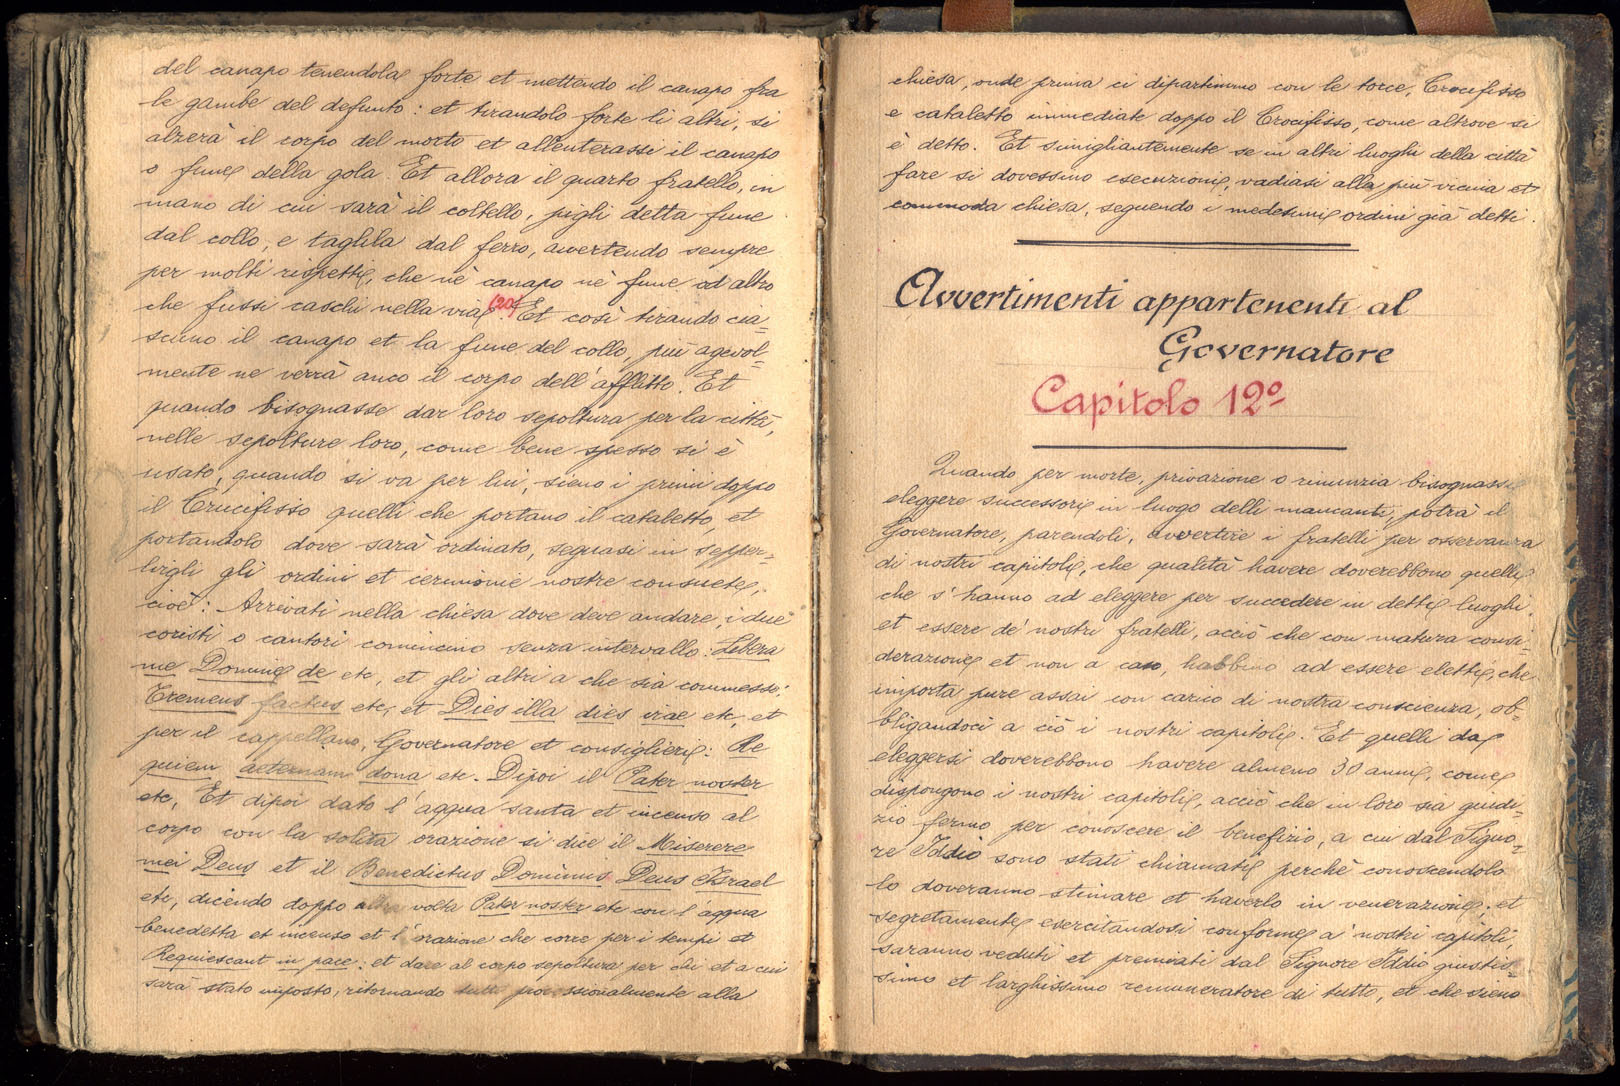 del canapo tenendola forte et mettendo il canapo fra
le gambe del defunto: et tirandolo forte li altri, si
alzerà il corpo del morto et allenterassi il canapo
o fune della gola. Et allora il quarto fratello, in
mano di cui sarà il coltello, pigli detta fune
dal collo, e taglila dal ferro, avvertendo sempre
per molti rispetti, che nè canapo nè fune od altro
che fussi caschi nella via. (20) Et così tirando cia=
scuno il canapo et la fune del collo, più agevol=
mente ne verrà anco il corpo dell'afflitto. Et
quando bisognasse dar loro sepoltura per la città,
nelle sepolture loro, come bene spesso si è
usato, quando si va per lui, sieno i primi doppo
il Crucifisso quelli che portano il cataletto, et
portandolo dove sarà ordinato, seguasi in seppel=
lirgli gli ordini et cerimonie nostre consuete,
cioè: Arrivati nella chiesa dove deve andare, i due
coristi o cantori comincino senza intervallo: Libera
me Domine de etc, et gli altri a che sia commesso:
Tremens factus etc, et Dies illa dies irae etc, et
per il cappellano, Governatore et consiglieri: Re
quiem aeternam dona etc. Dipoi il Pater noster
etc, Et dipoi dato l'acqua santa et incenso al
corpo con la solita orazione si dice il Miserere
mei Deus et il Benedictus Dominus Deus Israel
etc, dicendo doppo altra volta Pater noster etc con l'acqua
benedetta et incenso et l'orazione che corre per i tempi et
Requiescant in pace: et dare al corpo sepoltura per chi et a cui
sarà stato imposto, ritornando tutti processionalmente alla
chiesa, onde prima ci dipartimmo con le torce, Crocifisso
e cataletto immediate doppo il Crocifisso, come altrove si
è detto. Et simigliantemente se in altri luoghi della città
fare si dovessino esecuzioni, vadiasi alla più vicina et
commoda chiesa, seguendo i medesimi ordini già detti.
Avvertimenti appartenenti al
Governatore
Capitolo 12º
Quando per morte, privazione o rinunzia bisognassi
eleggere successori in luogo delli mancanti, potrà il
Governatore, parendoli, avvertire i fratelli per osservanza
di nostri capitoli, che qualità havere doverebbono quelli
che s'hanno ad eleggere per succedere in detti luoghi,
et essere de' nostri fratelli, acciò che con matura consi=
derazione et non a caso, habbino ad essere eletti, che
importa pure assai con carico di nostra conscienza, ob=
bligandoci a ciò i nostri capitoli. Et quelli da
eleggersi doverebbono havere almeno 30 anni, come
dispongono i nostri capitoli, acciò che in loro sia giudi=
zio fermo per conoscere il benefizio, a cui dal Signo=
re Iddio sono stati chiamati perchè conoscendolo
lo doveranno stimare et haverlo in venerazione; et
segretamente esercitandosi conforme a' nostri capitoli,
saranno veduti et premiati dal Signore Iddio giustis=
simo et larghissimo remuneratore di tutto, et che sieno